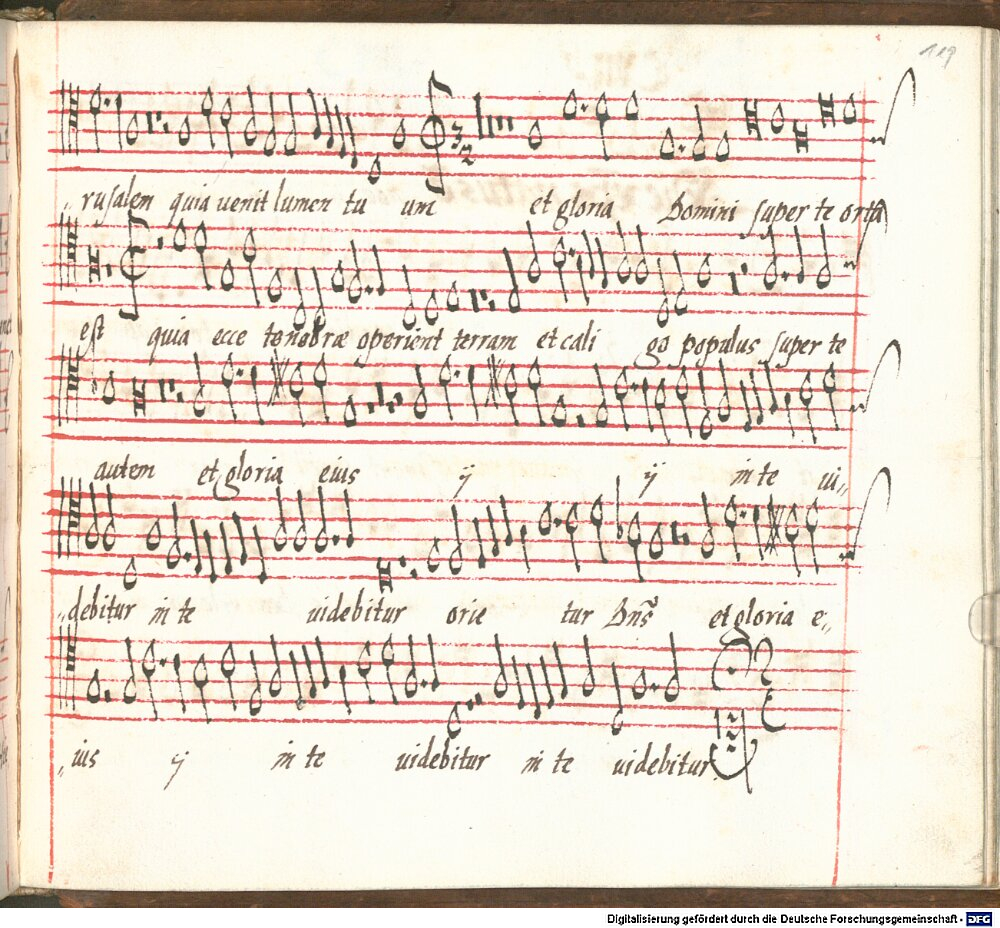 119
„rusalem quia uenit lumen tu um et gloria Domini super te orta
3
2
est quia ecce tenebræ operient terram et cali go populus super te
autem et gloria eius ij ij in te ui„
„debitur in te uidebitur orie tur Dns et gloria e„
„ius ij in te uidebitur in te uidebitur
Digitalisierung gefördert durch die Deutsche Forschungsgemeinschaft - DFG